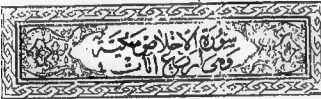 سورة الإخلاص مكية
وهي أربع آيات